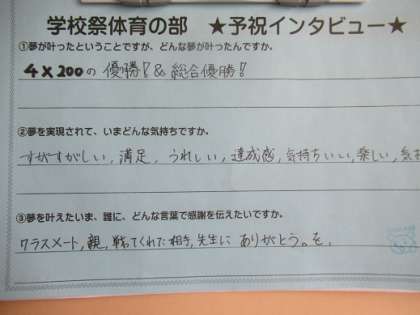 学校祭体育の部 ★予祝インタビュー★
①夢が叶ったということですが、どんな夢が叶ったんですか。
4×200の優勝!&総合優勝!
②夢を実現されて、いまどんな気持ちですか。
すがすがしい,満足,うれしい,達成感,気持ちいい,楽しい,気
③夢を叶えたいま、誰に、どんな言葉で感謝を伝えたいですか。
クラスメート,親,戦ってくれた相手,先生に ありがとう。を.